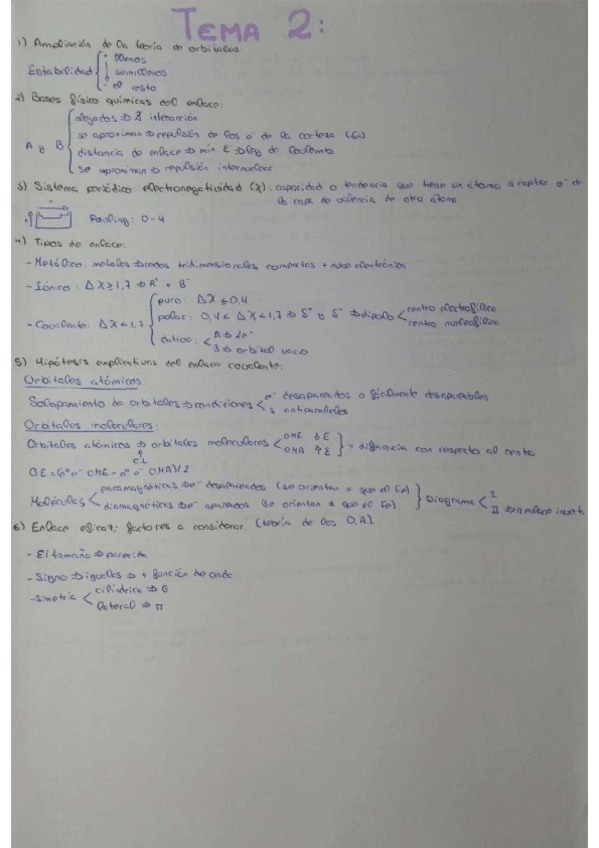 TEMA 2:
1) Ampliación de la teoría de orbitales
Estabilidad { + llenos
semillenos
- el resto
2) Bases físico químicas del enlace:
A y B { alejados ⇒ ∄ interacción
se aproximan ⇒ repulsión de los e⁻ de la corteza
distancia de enlace ⇒ mín E ⇒ ley de Coulomb
se aproximan ⇒ repulsión internuclear
3) Sistema periódico: electronegatividad (χ). capacidad o tendencia que tiene un átomo a captar e⁻ de
la capa de valencia de otro átomo
Pauling: 0-4
4) Tipos de enlace:
- Metálico: metales ⇒ redes tridimensionales compactas + nube electrónica
- Iónico: ΔX ≥ 1,7 ⇒ A⁺ + B⁻
- Covalente: ΔX < 1,7 { puro: ΔX ≤ 0,4
polar: 0,4 < ΔX < 1,7 ⇒ δ⁺ y δ⁻ ⇒ dipolo < centro electrofílico
centro nucleofílico
dativo: < A ⇒ 2e⁻
B ⇒ orbital vacío
5) Hipótesis explicativas del enlace covalente:
Orbitales atómicos:
Solapamiento de orbitales ⇒ condiciones < e⁻ desapareados o fácilmente desapareables
s antiparalelos
Orbitales moleculares:
Orbitales atómicos ⇒ orbitales moleculares < OME ↓E
OMA ↑E } = diferencia con respecto al centro
CL
OE = (nº e⁻ OME - nº e⁻ OMA)/2
Moléculas < paramagnéticas ⇒ e⁻ desapareados (se orientan
diamagnéticas ⇒ e⁻ apareados (se orientan } Diagrama < I
II ⇒
6) Enlace eficaz: factores a considerar. (teoría de los O.A).
- El tamaño ⇒ parecida
- Signo ⇒ iguales ⇒ + función de onda
- Simetría < cilíndrica ⇒ σ
lateral ⇒ π